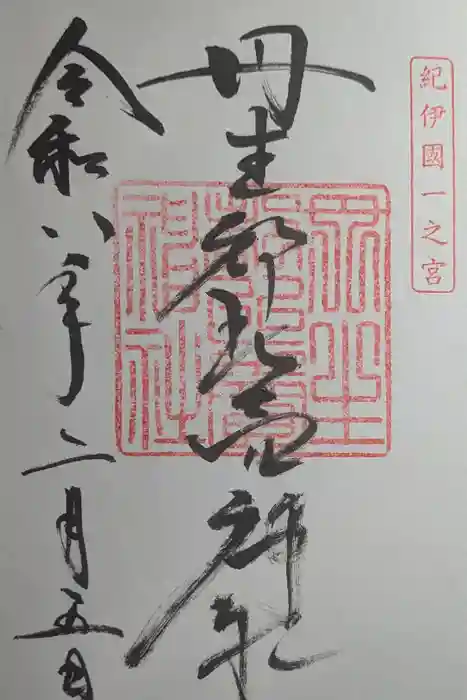 紀伊國一之宮
丹生都比売神社
令和八年二月五日